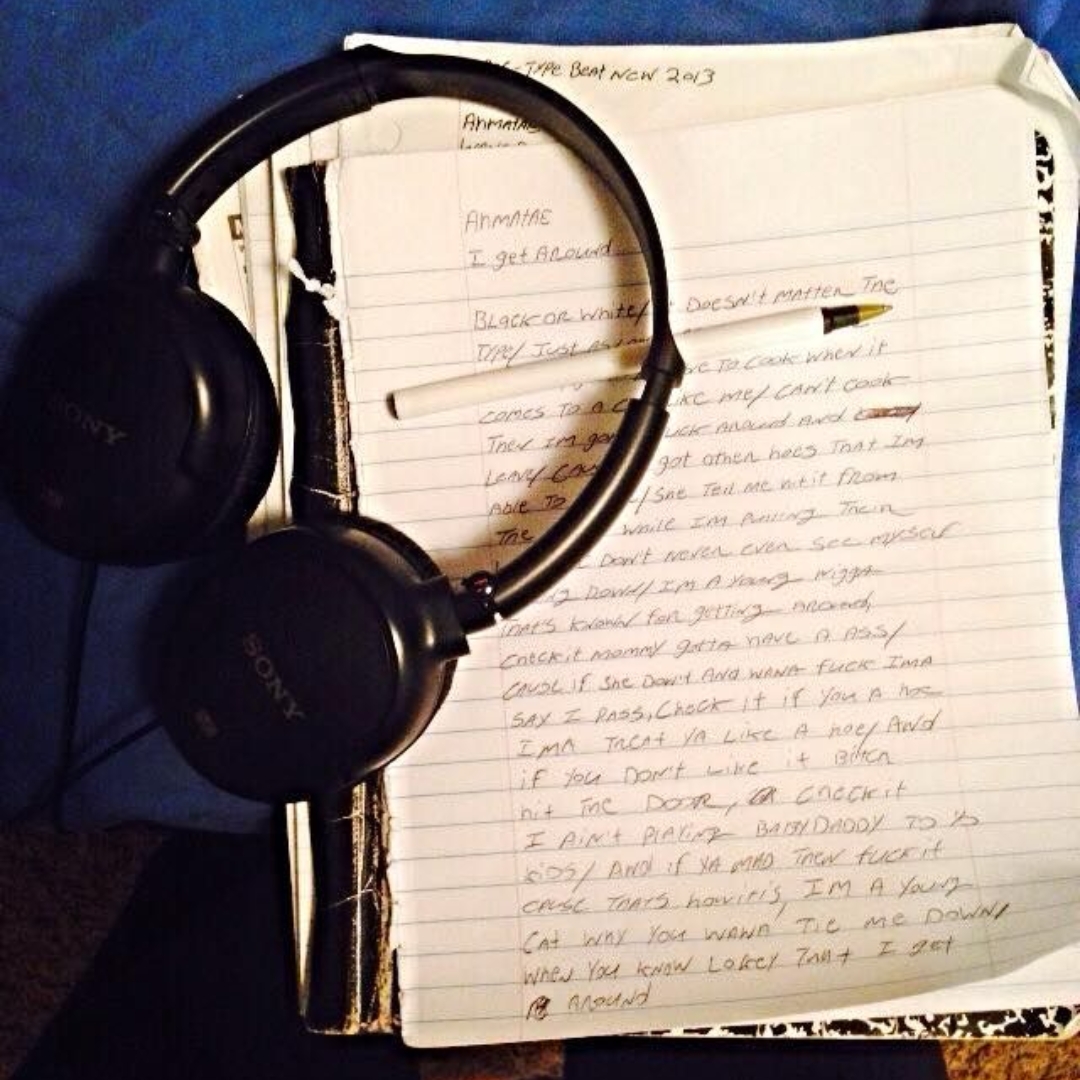 -Type Beat New 2013
Anmatae
Anmatae
I get Around
Black or White/ Doesn't matter The
Type/ Just
ve To cook when it
comes To a c ike me/ can't cook
Then Im gon uck around And
Leave/ Cau got other hoes That Im
Able To /She Tell me hit it from
The while Im pulling Their
Don't never even see myself
ng Down/ I'm A Young nigga
That's known for getting around,
Check it mommy gotta have A Ass/
cause if she Don't And wana fuck Ima
say I pass, Check it if you A hoe
Ima Treat ya Like A hoe/ And
if you Don't Like it Bitch
hit The Door, Check it
I Ain't Playing BabyDaddy To Yo
kids/ And if ya mad Then fuck it
cause Thats how it is, I'm A Young
Cat why you wana Tie me Down/
when you know Lokey That I get
Around
SONY
SONY